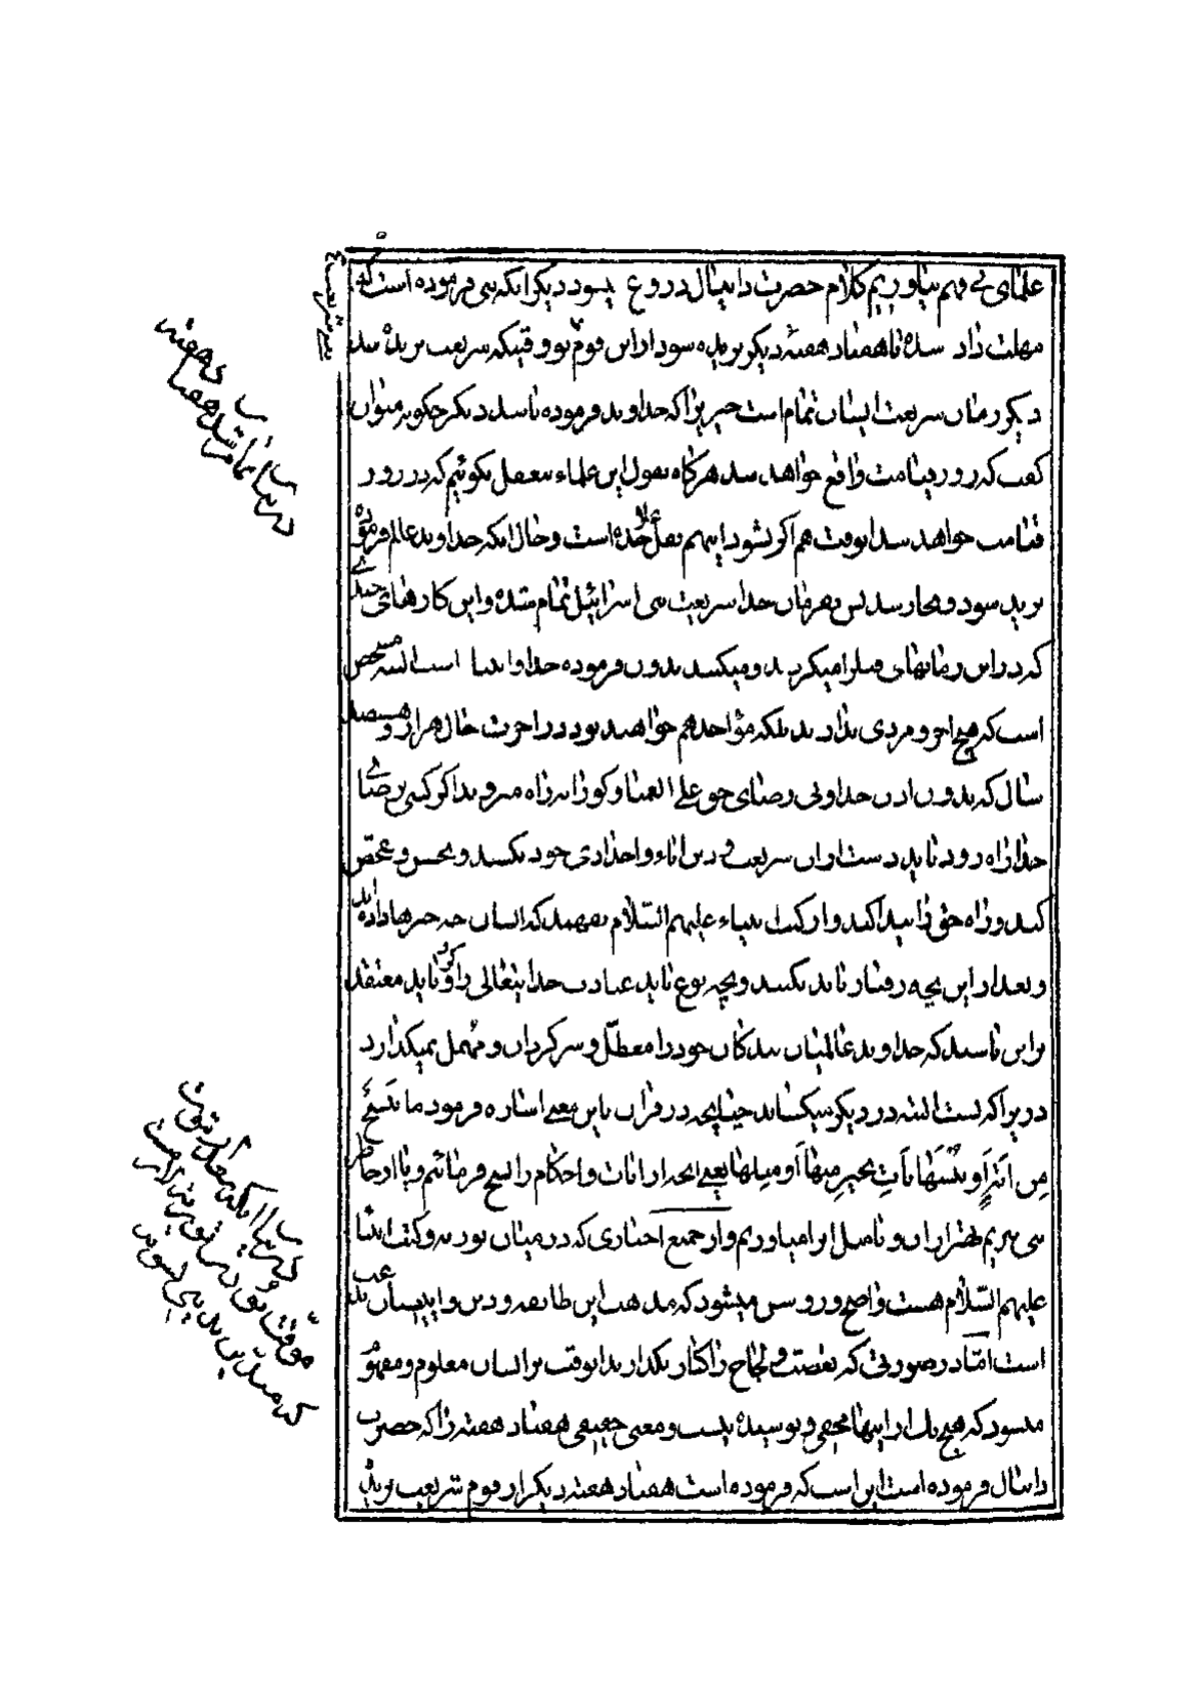 علمای بی فهم بیاوریم کلام حضرت دانیال دروغ میشود دیگر انکه نبی فرموده است که
مهلت داد شده تا هفتاد هفته دیگر بریده شود از این قوم تو وقتیکه شریعت بریده شد
دیگر زمان شریعت ایشان تمام است چیزیرا که خداوند فرموده باشد دیگر چگونه میتوان
گفت که روز قیامت واقع خواهد شد هرگاه بقول این علماء بیعقل بگوئیم که در روز
قیامت خواهد شد انوقت هم اگر بشود اینهم بعقل است و حال انکه خداوند عالم فرمود
برید شود و پس بفرمان خدا شریعت بنی اسرائیل تمام شده و این کارهای
که در این زمانهای میکردند و میکنند بدون فرموده خدا و انبیا است البته مشخص
است که هیچ اجر و مزدی ندارند بلکه مؤاخذ هم خواهند بود در اخرت حال هزار و سیصد
سال که بدون اذن خدا و بی رضای حق علی العمیا و کورانه راه میروند اگر کسی برضای
خدا راه رود باید دست از ان شریعت و دین اباء و اجدادی خود بکشد و تجسس و تفحص
کند و راه حق را پیدا کند و از کتب انبیاء علیهم السلام بفهمد که ایشان چه خبرها داده اند
و بعد از این بچه رفتار باید بکنند و بچه نوع باید عبادت خدایتعالی را کرد و باید معتقد
بر این باشند که خداوند عالمیان بندکان خود را معطل و سرکردان و مهمل نمیکذارد
دریرا که بست البته در دیگر میکشاید چنانچه در قران باین معنی اشاره فرمود ما ننسخ
من ایة او ننسها نات بخیر منها او مثلها یعنی انچه از ایات و احکام را نسخ فرمائیم و یا از خاطر
می بریم بهتر از ان و یا مثل انرا میاوریم و از جمیع اخباری که در میان توریة و کتب انبیا
علیهم السلام هست واضح و روشن میشود که مذهب این طایفه و دین و ایین شان عبث
است اما در صورتی که تعصب و لجاج را کنار بکذارند انوقت بر ایشان معلوم و مفهوم
میشود که هیچ یک از اینها مخفی و پوشیده نیست و معنی حقیقی هفتاد هفته را که حضرت
دانیال فرموده است این است که فرموده است هفتاد هفته دیگر از قوم شریعت بریده